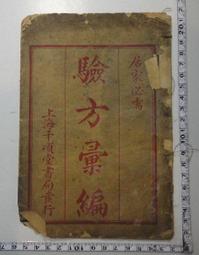 居家必書
驗方彙編
上海千頃堂書局發行